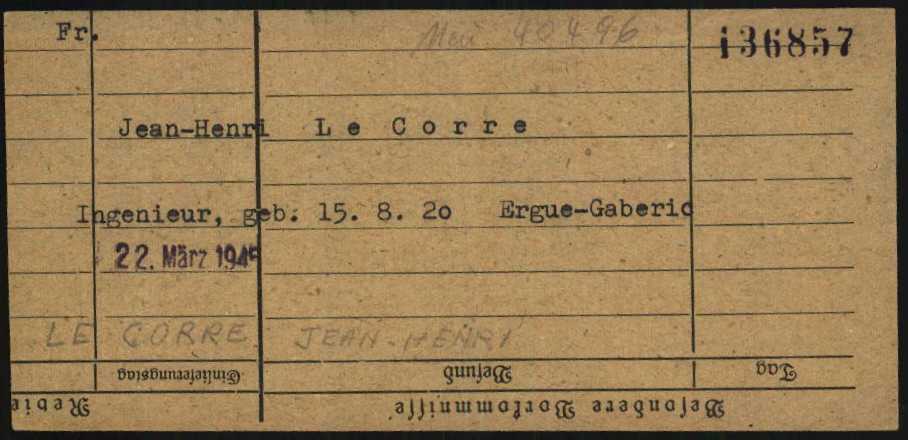 Fr. Mau 40496 136857
Jean-Henri L e C o r r e
Ingenieur, geb. 15. 8. 2o Ergue-Gaberic
22. März 1945
LE CORRE JEAN-HENRI
Einlieferungstag Befund Tag
Revie Besondere Vorkommnisse